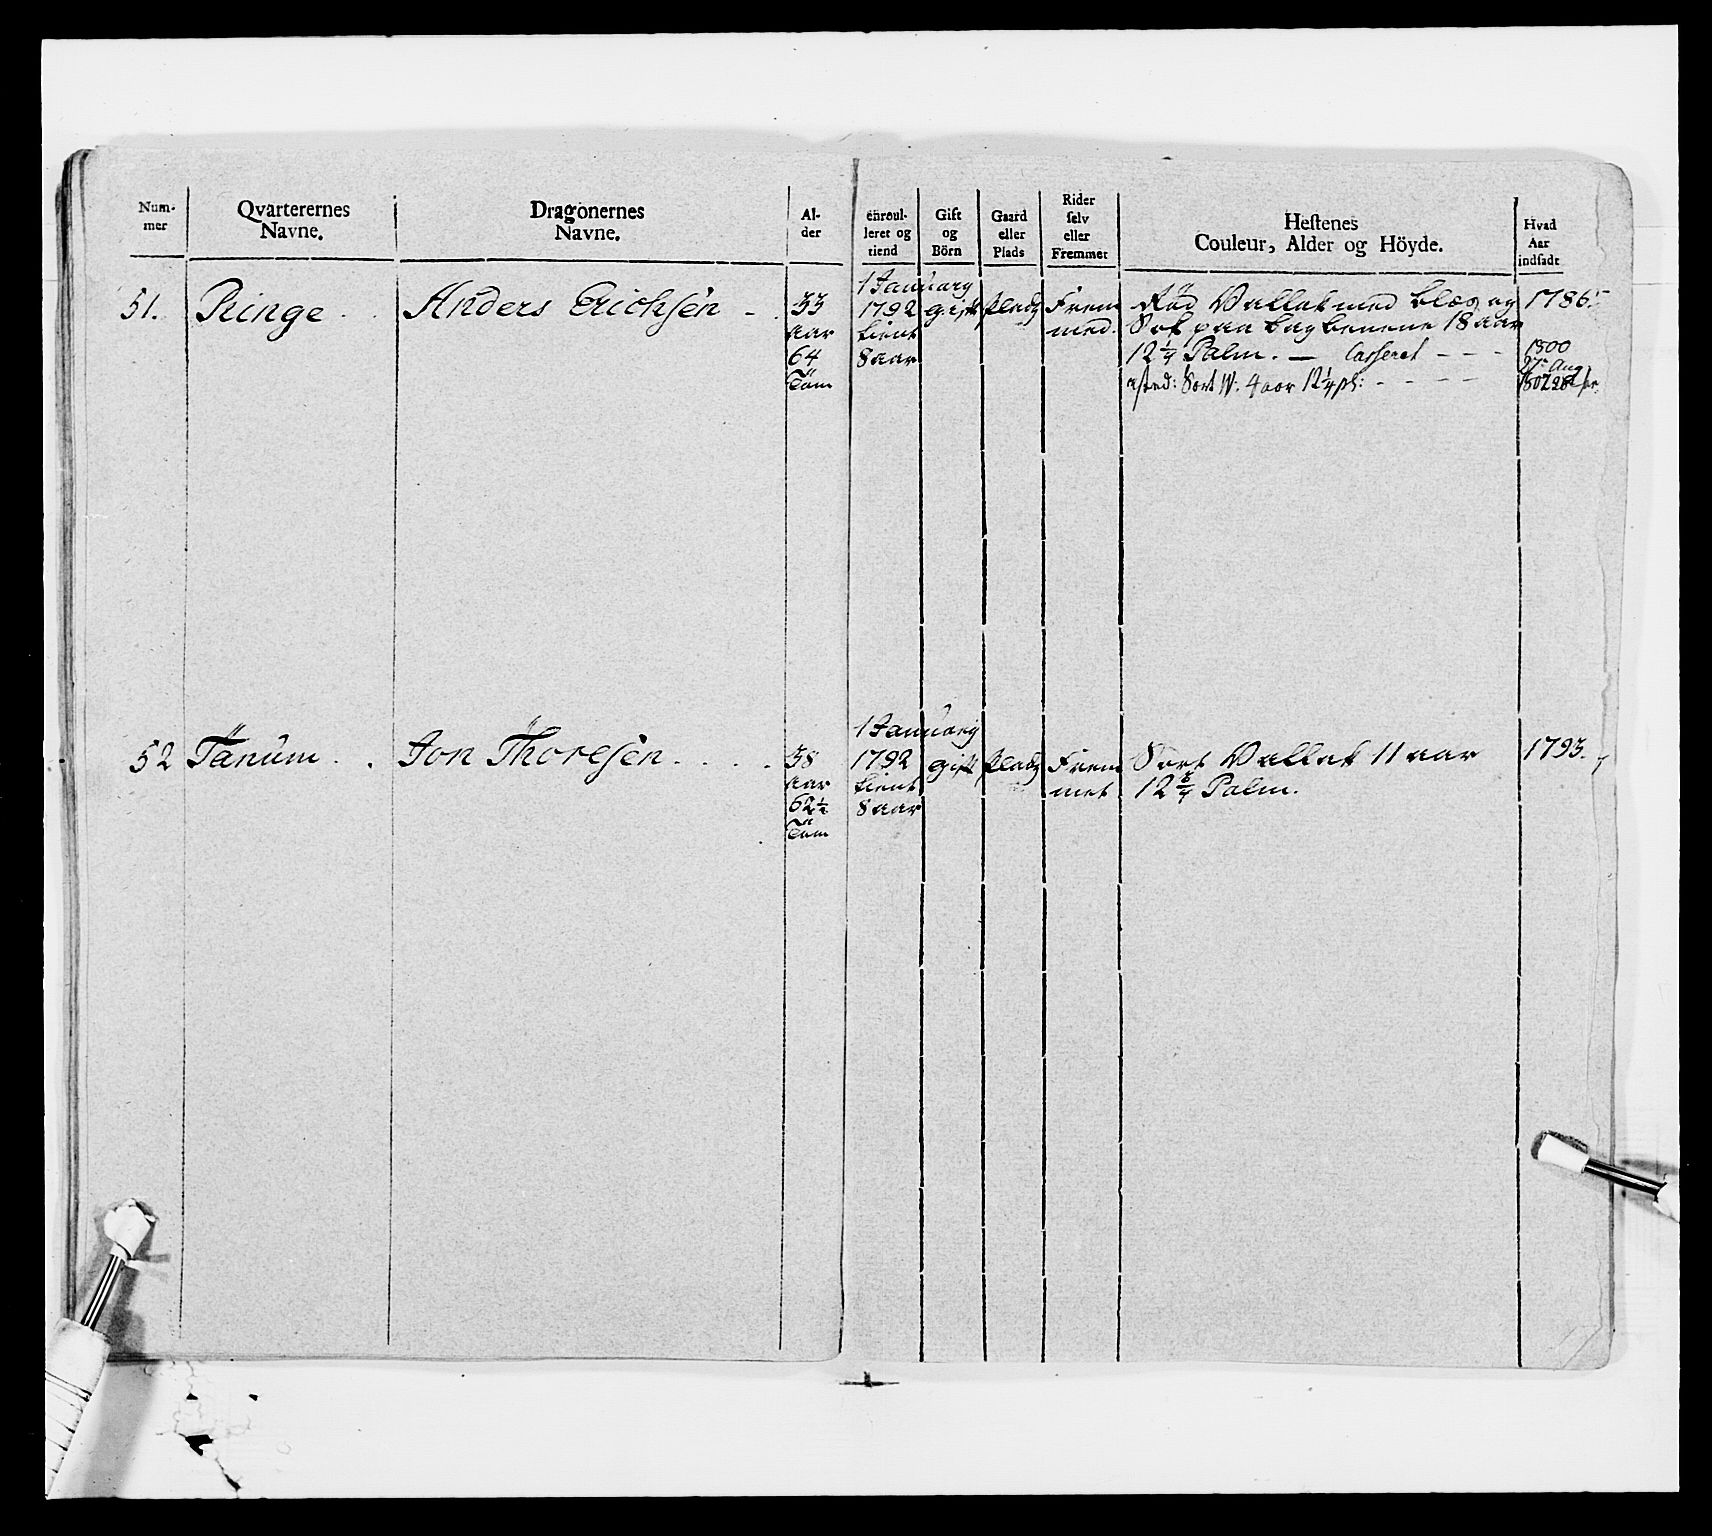 Num-
mer
Qvarterernes
Navne.
Dragonernes
Navne.
Al-
der
enroul-
leret og
tiend
Gift
og
Börn
Gaard
eller
Plads
Rider
selv
eller
Fremmet
Hestenes
Couleur, Alder og Höyde.
Hvad
Aar
indsadt
51.
Ringe
Anders Erichsen
33
aar
64
Tom
1 January
1792
tient
8 aar
gift
plads
Frem
med.
Rød Vallak med blæs og
Sok paa bag benene 18 aar
12 1/4 Palm. — Casseret - - -
Sort W. 4 aar 12 1/4 pl: - - - -
1786.
1800
27 Aug
52
Tanum
Jon Thoresen
38
aar
62 1/2
Tom
1 January
1792
tient
8 aar
gift
plads
Frem
met
Sort Vallak 11 aar
12 3/4 Palm.
1793.